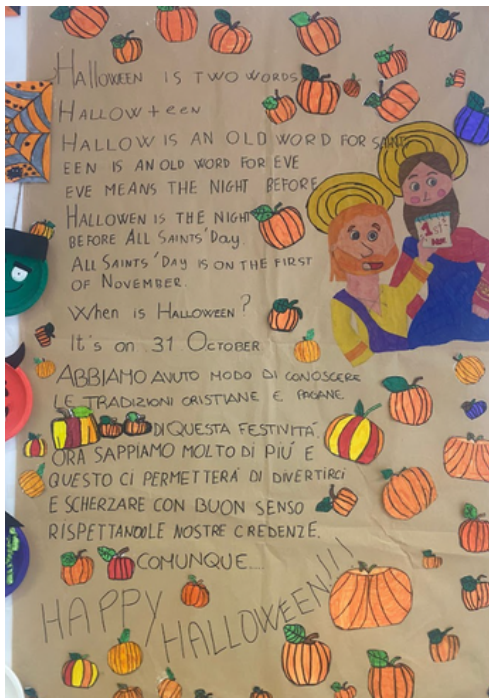 HALLOWEEN IS TWO WORDS
HALLOW + EEN
HALLOW IS AN OLD WORD FOR SAINT
EEN IS AN OLD WORD FOR EVE
EVE MEANS THE NIGHT BEFORE
HALLOWEN IS THE NIGHT
BEFORE ALL SAINTS' DAY.
ALL SAINTS' DAY IS ON THE FIRST
OF NOVEMBER.
WHEN IS HALLOWEEN?
IT'S ON 31 OCTOBER
1st
NOV
ABBIAMO AVUTO MODO DI CONOSCERE
LE TRADIZIONI CRISTIANE E PAGANE
DI QUESTA FESTIVITÀ.
ORA SAPPIAMO MOLTO DI PIÚ E
QUESTO CI PERMETTERÀ DI DIVERTIRCI
E SCHERZARE CON BUON SENSO
RISPETTANDO LE NOSTRE CREDENZE.
COMUNQUE....
HAPPY HALLOWEEN!!!